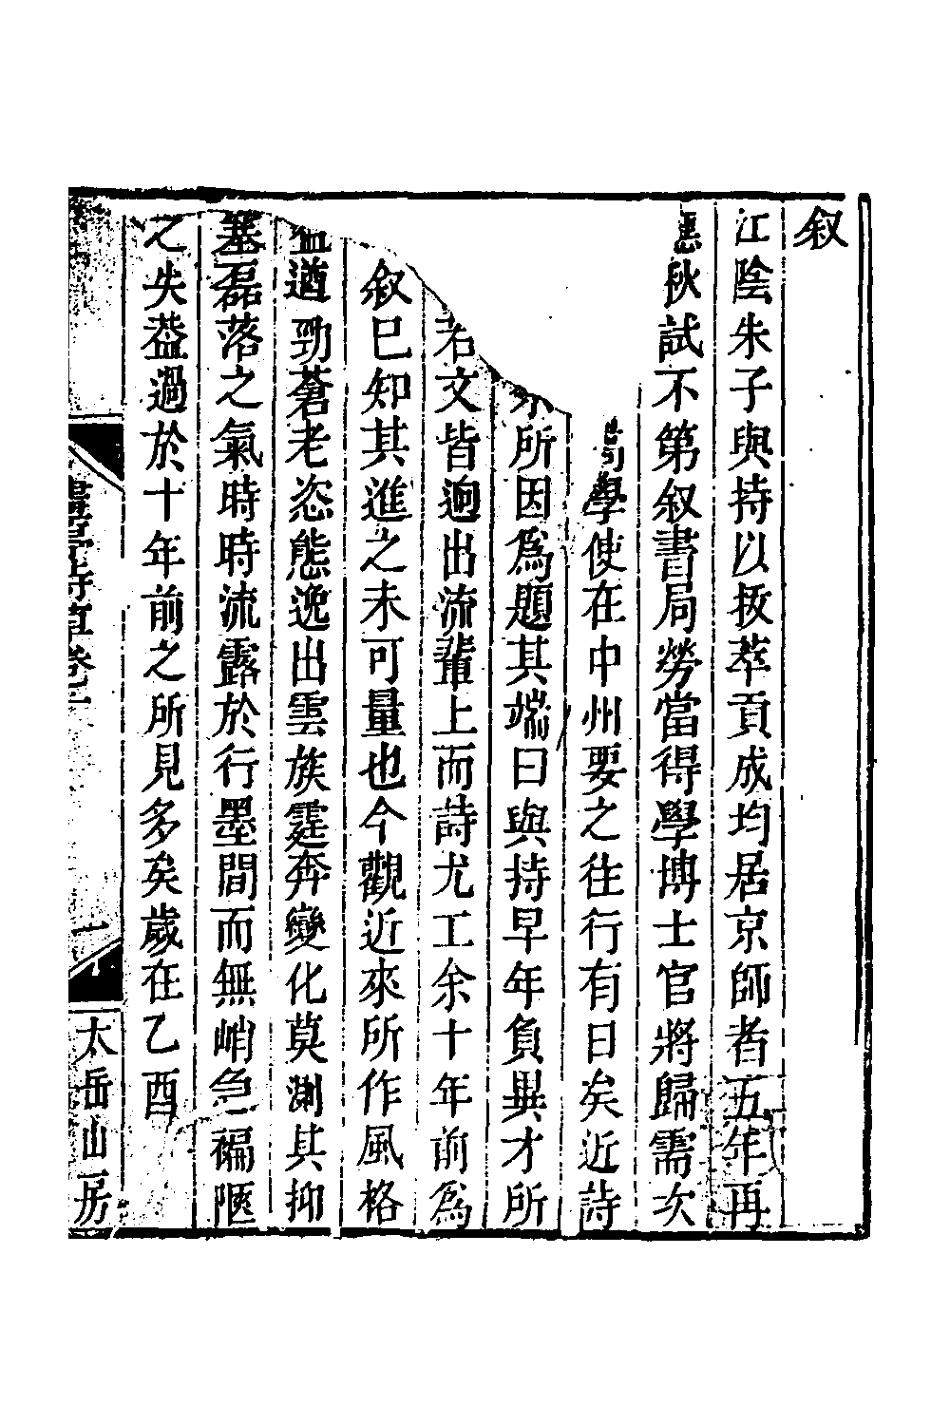 叙
江陰朱子與持以拔萃貢成均居京師者五年再
應秋試不第叙書局勞當得學博士官將歸需次
學使在中州要之往行有日矣近詩
所因爲題其端曰與持早年負異才所
文皆迥出流輩上而詩尤工余十年前爲
叙已知其進之未可量也今觀近來所作風格
益遒勁蒼老恣態逸出雲族霆奔變化莫測其抑
塞磊落之氣時時流露於行墨間而無峭急褊陋
之失葢過於十年前之所見多矣歲在乙酉
詩草卷
一
太岳山房